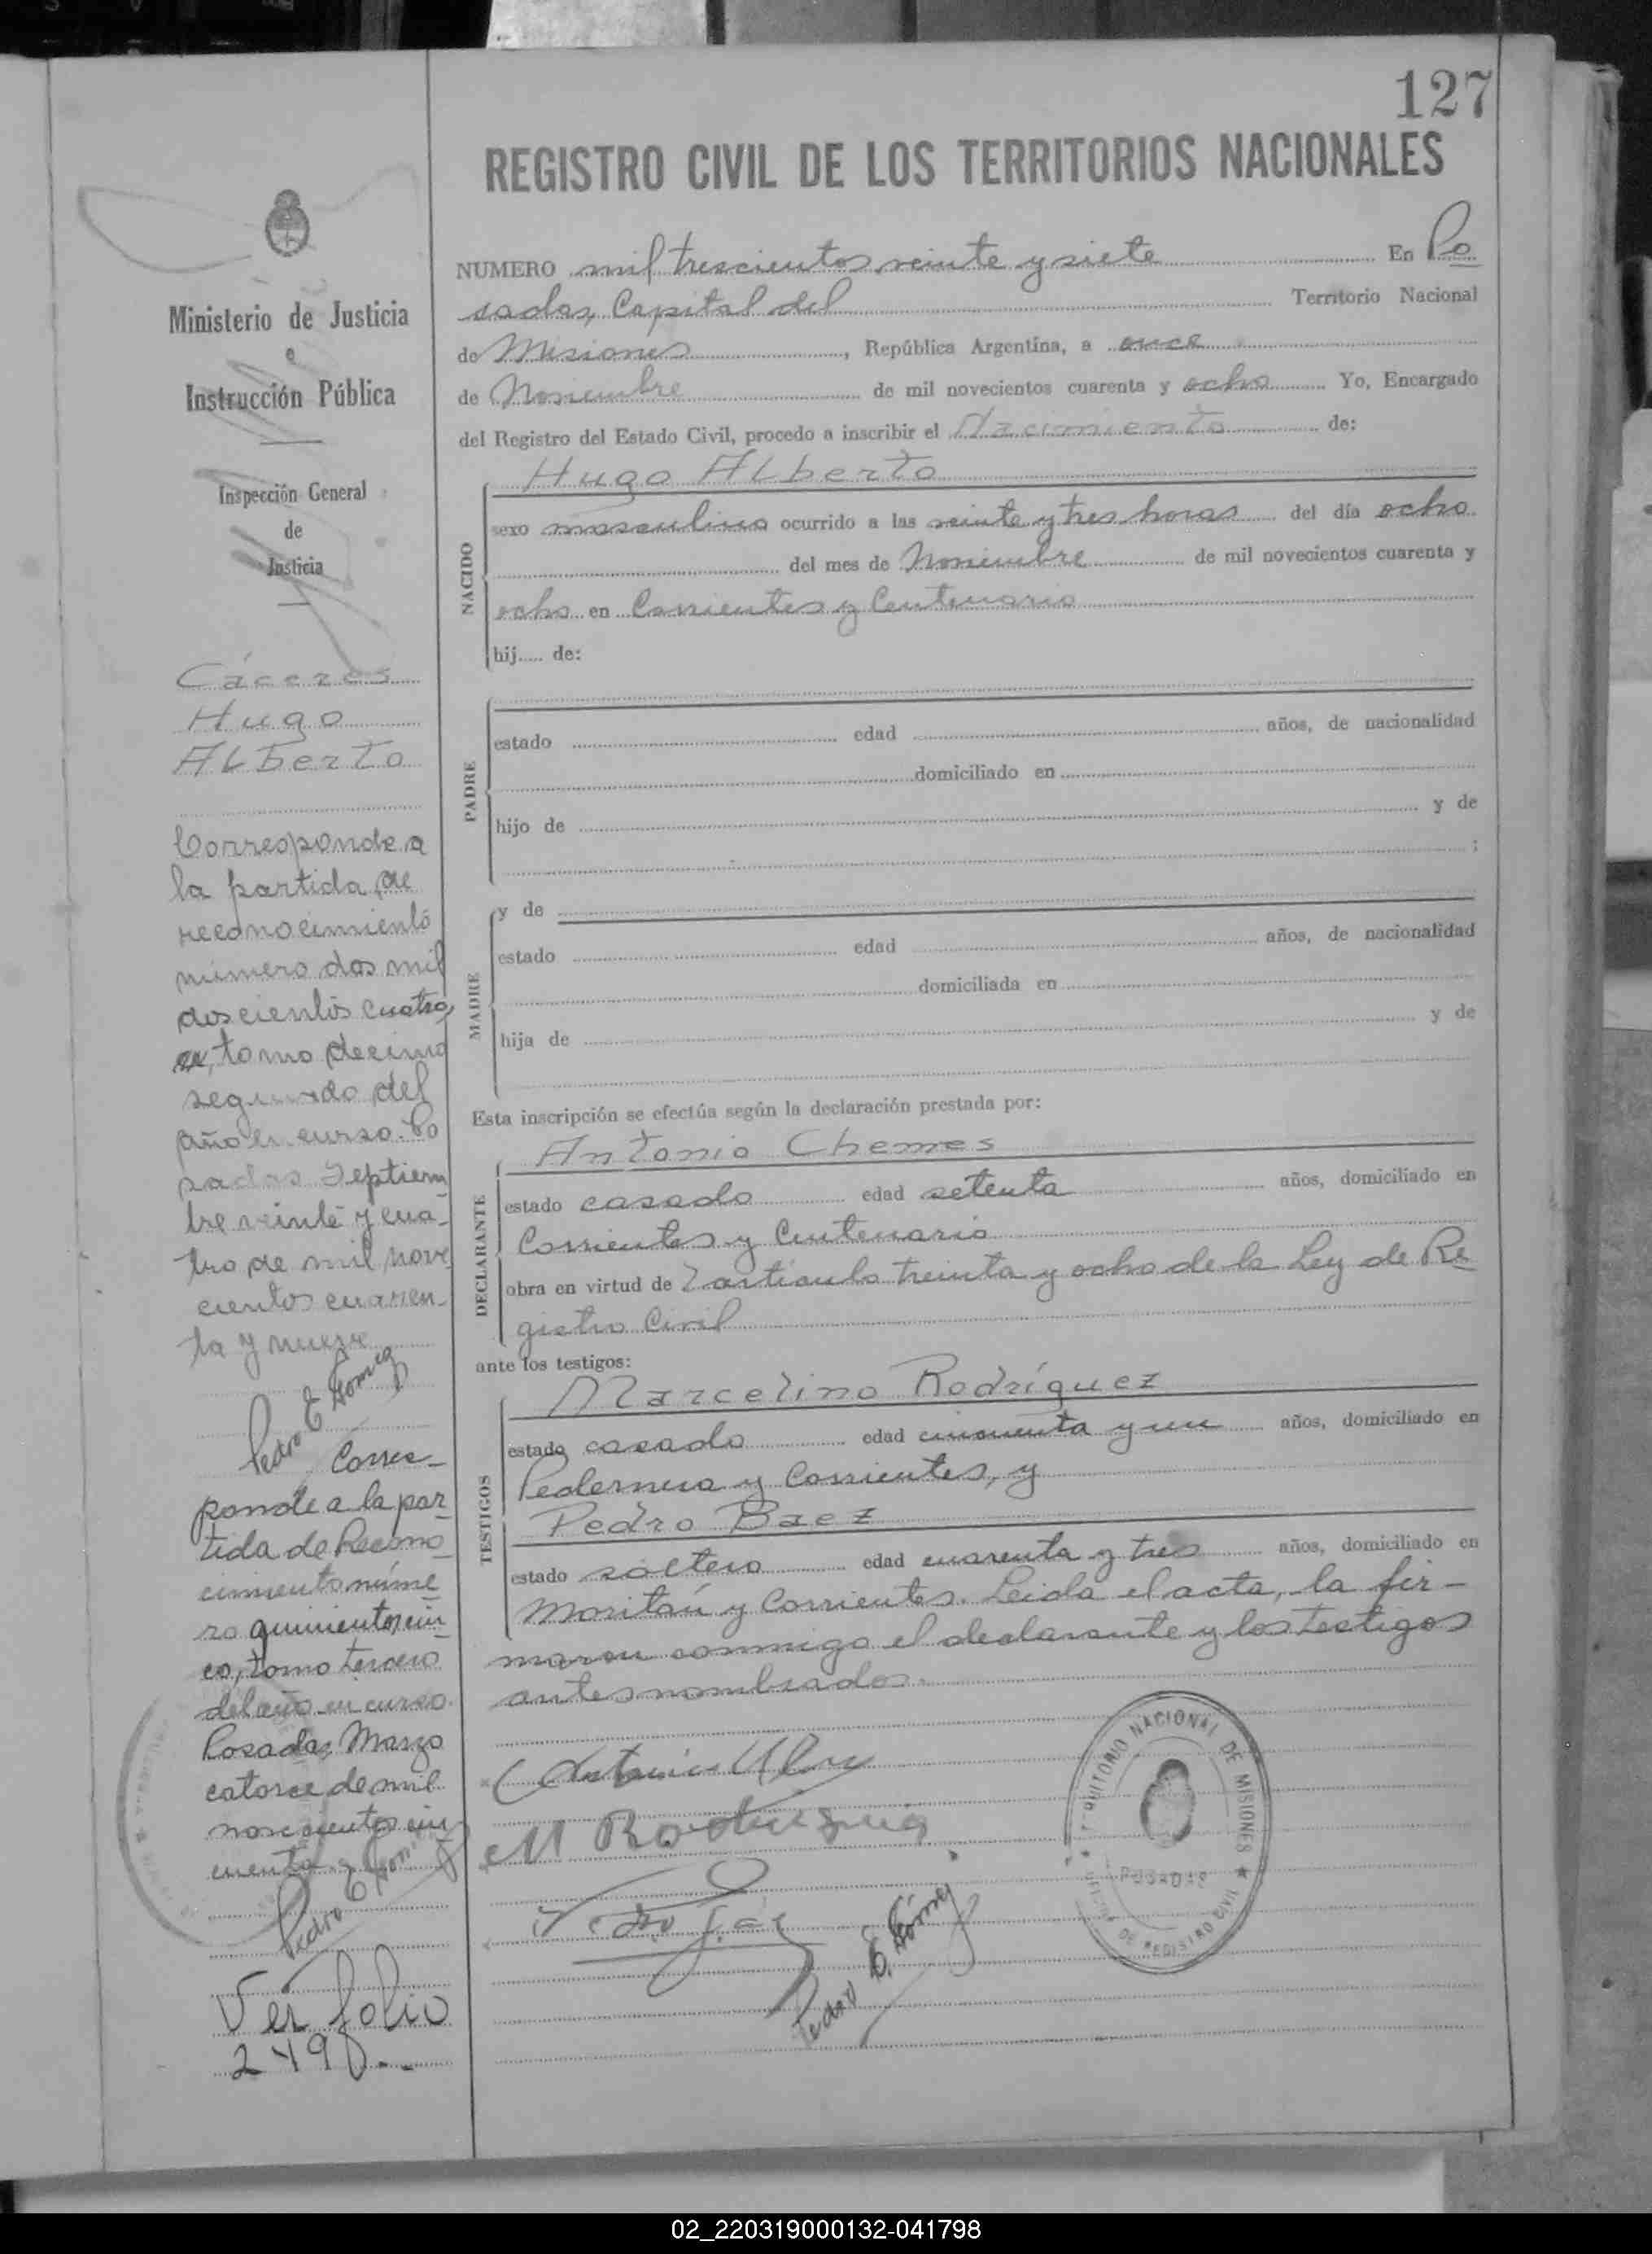 127
REGISTRO CIVIL DE LOS TERRITORIOS NACIONALES
NUMERO mil trescientos veinte y siete En Po
sadas, Capital del Territorio Nacional
de Misiones, República Argentina, a once
de Noviembre de mil novecientos cuarenta y ocho Yo, Encargado
del Registro del Estado Civil, procedo a inscribir el Nacimiento de:
Hugo Alberto
NACIDO
sexo masculino ocurrido a las veinte y tres horas del día ocho
del mes de Noviembre de mil novecientos cuarenta y
ocho en Corrientes y Centenario
hij..... de:
PADRE
estado edad años, de nacionalidad
domiciliado en
hijo de y de
;
MADRE
y de
estado edad años, de nacionalidad
domiciliada en
hija de y de
Esta inscripción se efectúa según la declaración prestada por:
DECLARANTE
Antonio Chemes
estado casado edad setenta años, domiciliado en
Corrientes y Centenario
obra en virtud de articulo treinta y ocho de la Ley de Re
gistro Civil
ante los testigos:
TESTIGOS
Marcelino Rodríguez
estado casado edad cincuenta y un años, domiciliado en
Pedernera y Corrientes, y
Pedro Baez
estado soltero edad cuarenta y tres años, domiciliado en
y Corrientes. Leida el acta, la fir-
maron conmigo el declarante y los testigos
antes nombrados.
M Rodriguez
Pedro E. Gómez
TERRITORIO NACIONAL DE MISIONES
POSADAS
OFICINA DE REGISTRO CIVIL
Ministerio de Justicia
e
Instrucción Pública
Inspección General
de
Justicia
Cáceres
Hugo
Alberto
Corresponde a
la partida de
reconocimiento
número dos mil
doscientos cuatro,
tomo decimo
segundo del
año en curso. Po
sadas Septiem
bre veinte y cua-
tro de mil nove
cientos cuaren-
ta y nueve
Pedro E Gomez
Corres-
ponde a la par
tida de Recono
cimiento núme
ro quinientos cin
co, tomo tercero
del año en curso.
Posadas, Marzo
catorce de mil
novecientos cin
cuenta
Pedro E Gomez
Ver folio
249
02_220319000132-041798